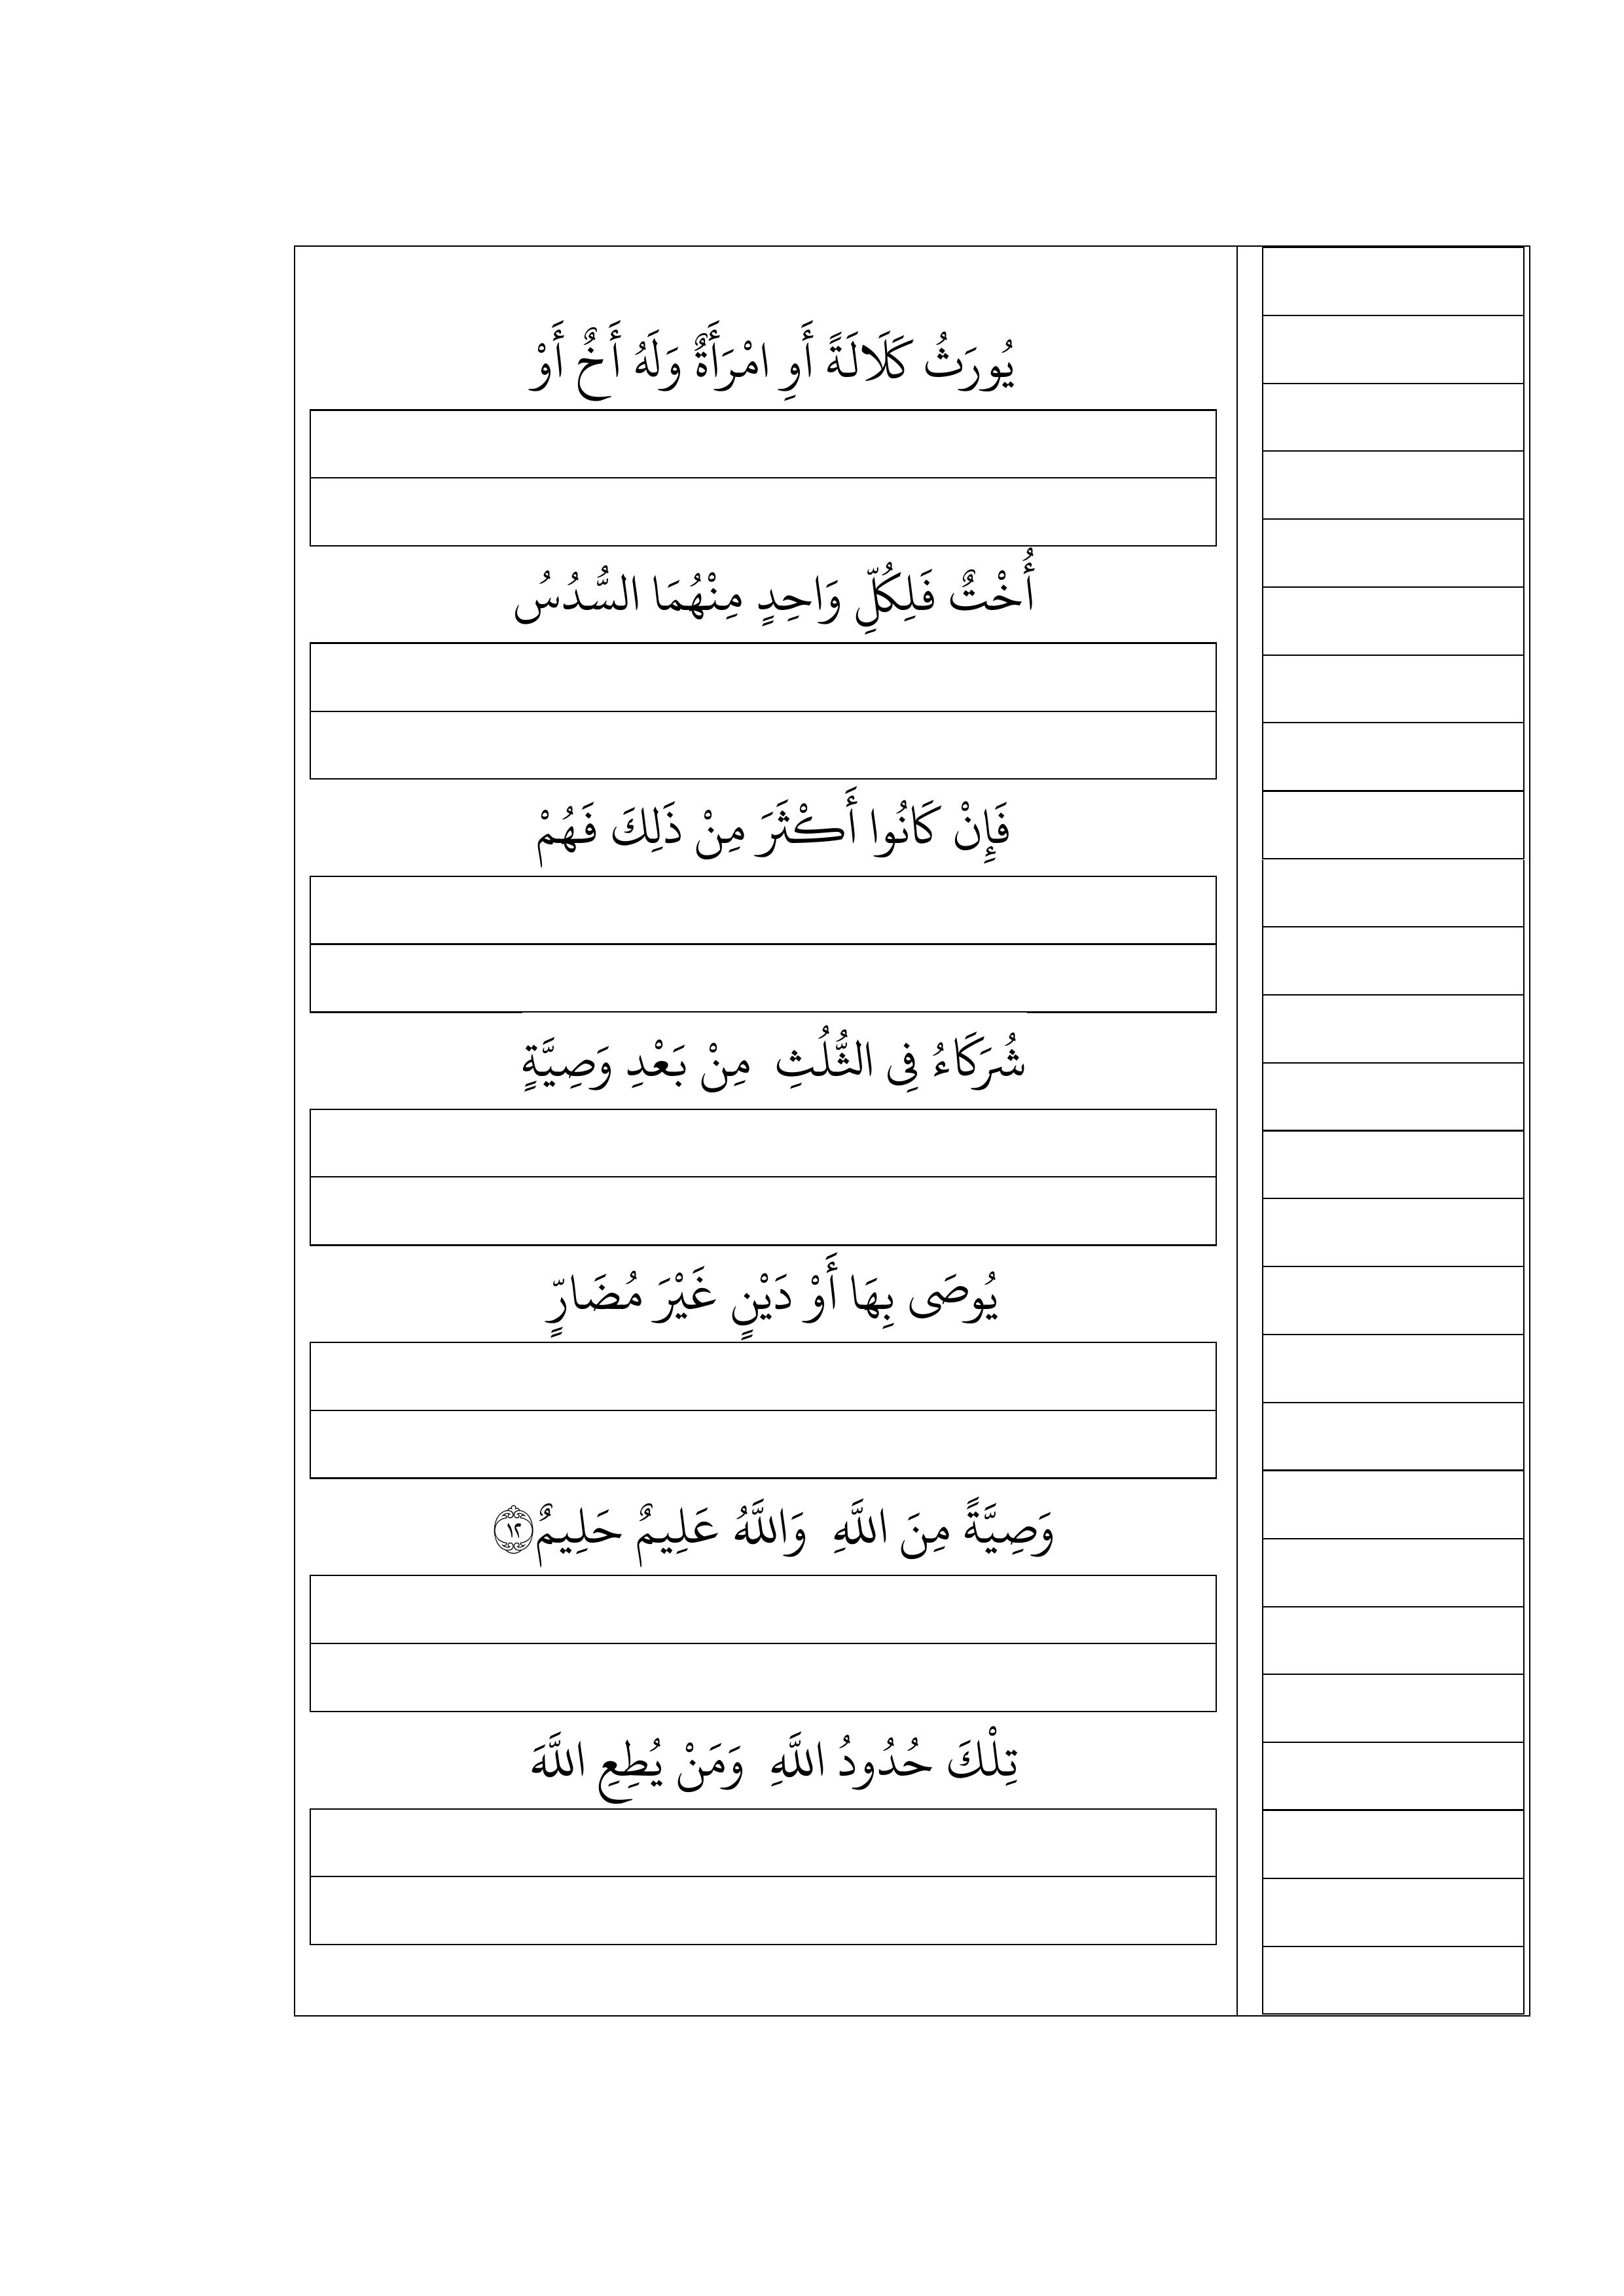 يُورَثُ كَلَالَةً أَوِ امْرَأَةٌ وَلَهُ أَخٌ أَوْ
أُخْتٌ فَلِكُلِّ وَاحِدٍ مِنْهُمَا السُّدُسُ
فَإِنْ كَانُوا أَكْثَرَ مِنْ ذَلِكَ فَهُمْ
شُرَكَاءُ فِى الثُّلُثِ مِنْ بَعْدِ وَصِيَّةٍ
يُوصَى بِهَا أَوْ دَيْنٍ غَيْرَ مُضَارٍّ
وَصِيَّةً مِنَ اللَّهِ وَاللَّهُ عَلِيمٌ حَلِيمٌ ١٢
تِلْكَ حُدُودُ اللَّهِ وَمَنْ يُطِعِ اللَّهَ